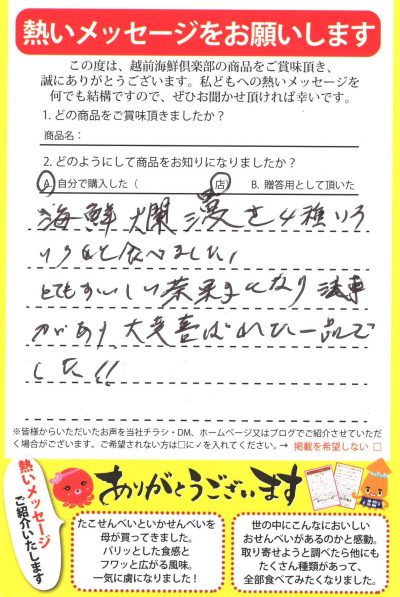 熱いメッセージをお願いします
この度は、越前海鮮倶楽部の商品をご賞味頂き、
誠にありがとうございます。私どもへの熱いメッセージを
何でも結構ですので、ぜひお聞かせ頂ければ幸いです。
1. どの商品をご賞味頂きましたか?
商品名：
2. どのようにして商品をお知りになりましたか?
A. 自分で購入した（ 店） B. 贈答用として頂いた
海鮮爛漫を4種いろ
いろと食べました!
とてもおいしい
があり、大変喜ばれた一品で
した!!
※皆様からいただいたお声を当社チラシ・DM、ホームページ又はブログでご紹介させていただ
く場合がございます。ご希望されない方は□に✓を入れてください。→ 掲載を希望しない □
熱いメッセージ
ご紹介いたします
ありがとうございます
たこせんべいといかせんべいを
母が買ってきました。
パリッとした食感と
フワッと広がる風味。
一気に虜になりました!
世の中にこんなにおいしい
おせんべいがあるのかと感動。
取り寄せようと調べたら他にも
たくさん種類があって、
全部食べてみたくなりました。